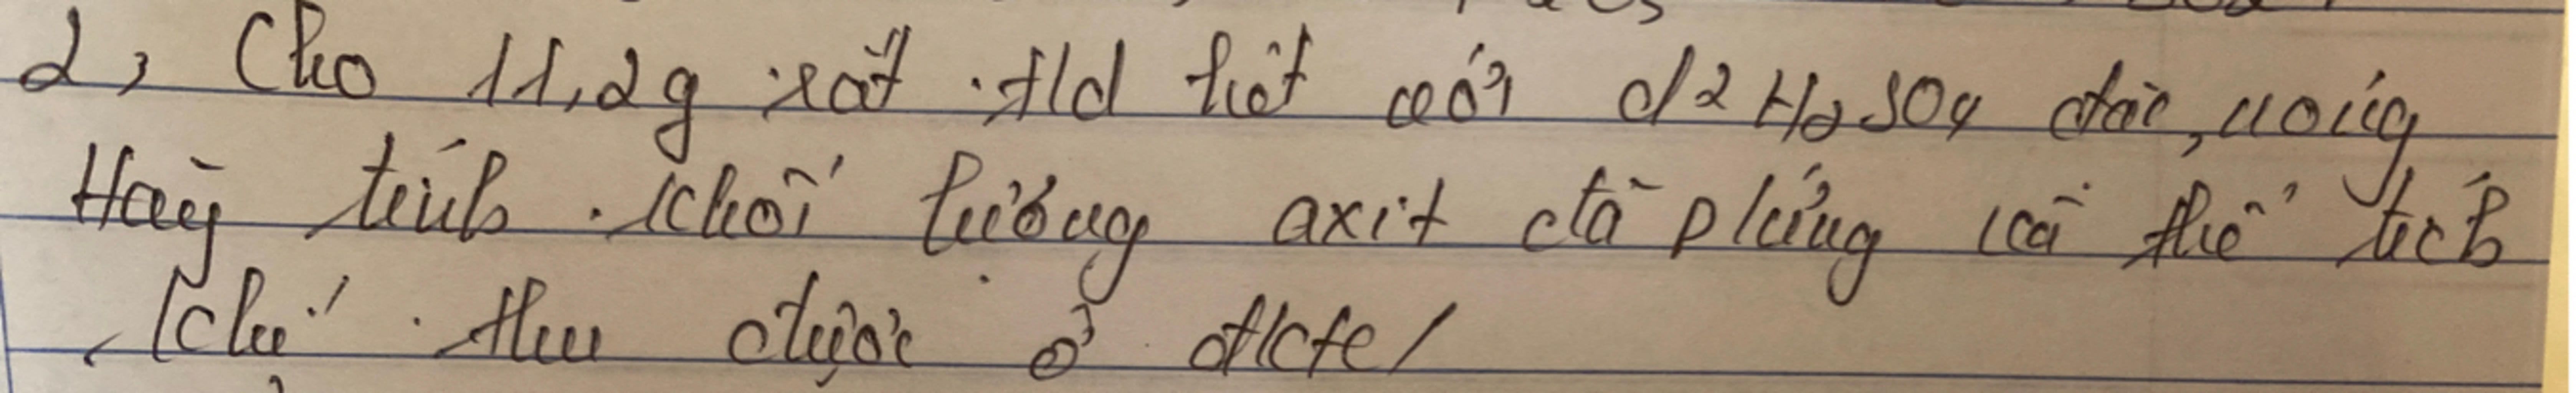 2, Cho 11,2g sắt td hết với d2 H2SO4 đặc, nóng
Hãy tính khối lượng axit đã p/ứng và thể tích
khí thu được ở đktc /